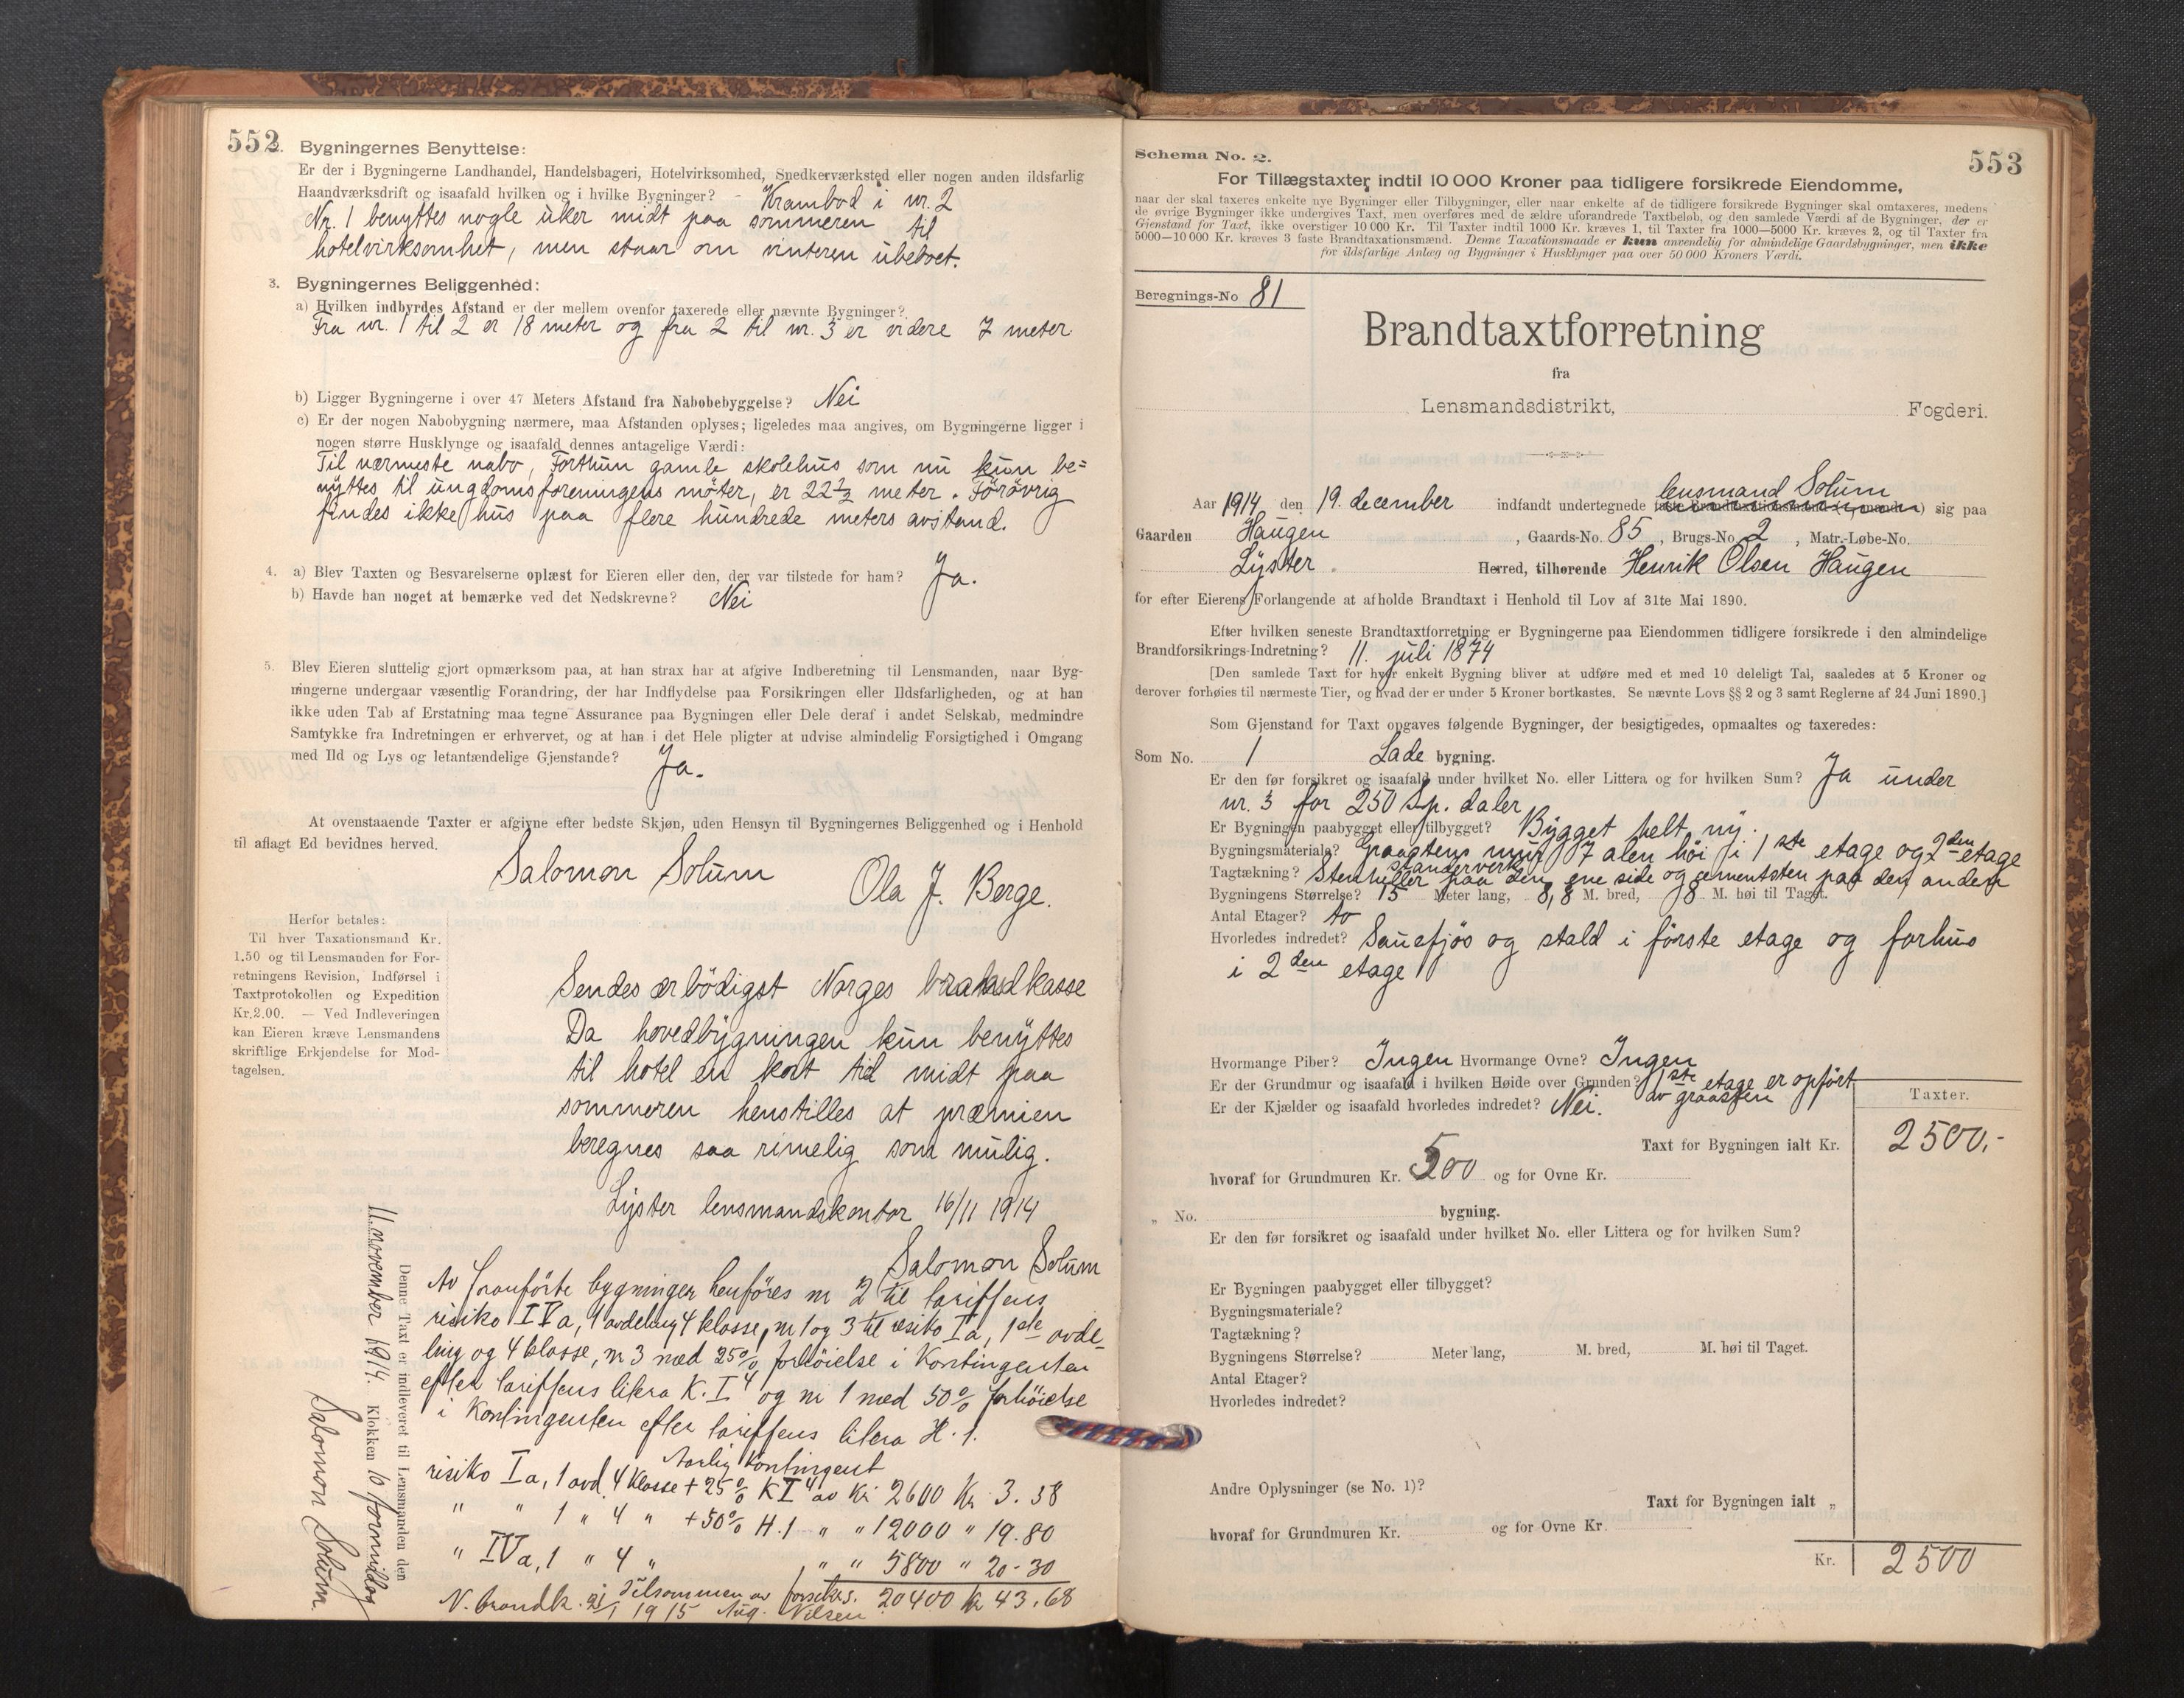 552
2. Bygningernes Benyttelse:
Er der i Bygningerne Landhandel, Handelsbageri, Hotelvirksomhed, Snedkerværksted eller nogen anden ildsfarlig
Haandværksdrift og isaafald hvilken og i hvilke Bygninger? - Krambod i nr. 2
Nr. 1 benyttes nogle uker midt paa sommeren til
hotelvirksomhet, men staar om vinteren ubeboet.
3. Bygningernes Beliggenhed:
a) Hvilken indbyrdes Afstand er der mellem ovenfor taxerede eller nævnte Bygninger?
Fra nr. 1 til 2 er 18 meter og fra 2 til nr. 3 er videre 7 meter.
b) Ligger Bygningerne i over 47 Meters Afstand fra Nabobebyggelse? Nei
c) Er der nogen Nabobygning nærmere, maa Afstanden oplyses; ligeledes maa angives, om Bygningerne ligger i
nogen større Husklynge og isaafald dennes antagelige Værdi:
Til nærmeste nabo, Forthun gamle skolehus som nu kun be=
nyttes til ungdomsforeningens möter, er 22½ meter. Forövrig
findes ikke hus paa flere hundrede meters avstand.
4. a) Blev Taxten og Besvarelserne oplæst for Eieren eller den, der var tilstede for ham? Ja.
b) Havde han noget at bemærke ved det Nedskrevne? Nei
5. Blev Eieren sluttelig gjort opmærksom paa, at han strax har at afgive Indberetning til Lensmanden, naar Byg-
ningerne undergaar væsentlig Forandring, der har Indflydelse paa Forsikringen eller Ildsfarligheden, og at han
ikke uden Tab af Erstatning maa tegne Assurance paa Bygningen eller Dele deraf i andet Selskab, medmindre
Samtykke fra Indretningen er erhvervet, og at han i det Hele pligter at udvise almindelig Forsigtighed i Omgang
med Ild og Lys og letantændelige Gjenstande? Ja.
At ovenstaaende Taxter er afgivne efter bedste Skjøn, uden Hensyn til Bygningernes Beliggenhed og i Henhold
til aflagt Ed bevidnes herved.
Salomon Solum
Ola J. Berge.
Herfor betales:
Til hver Taxationsmand Kr.
1.50 og til Lensmanden for For-
retningens Revision, Indførsel i
Taxtprotokollen og Expedition
Kr. 2.00. — Ved Indleveringen
kan Eieren kræve Lensmandens
skriftlige Erkjendelse for Mod-
tagelsen.
Sendes ærbödigst Norges brandkasse
Da hovedbygningen kun benyttes
til hotel en kort tid midt paa
sommeren henstilles at præmien
beregnes saa rimelig som mulig.
Lyster lensmandskontor 16/11 1914
Salomon Solum
Denne Taxt er indleveret til Lensmanden den
11. november 1914. Klokken 10 formiddag
Salomon Solum.
Av foranförte bygninger henföres nr 2 til tariffens
risiko IVa, 1 avdeling 4 klasse, nr 1 og 3 til risiko Ia, 1ste avde-
ling og 4 klasse, nr 3 med 25% forhöielse i Kontingenten
efter tariffens litera K. I⁴ og nr 1 med 50% forhöielse
i Kontingenten efter tariffens litera H. 1.
Aarlig Kontingent
risiko Ia, 1 avd. 4 klasse + 25% K I⁴ av Kr 2600 Kr 3.38
" " 1 " 4 " + 50% H. 1 " " 12000 " 19.80
" IVa, 1 " 4 " " " 5800 " 20-30
Tilsammen av forsikrs. 20400 kr 43.68
N. brandk. 21/1 1915 Aug. Nilsen
553
Schema No. 2.
For Tillægstaxter indtil 10 000 Kroner paa tidligere forsikrede Eiendomme,
naar der skal taxeres enkelte nye Bygninger eller Tilbygninger, eller naar enkelte af de tidligere forsikrede Bygninger skal omtaxeres, medens
de øvrige Bygninger ikke undergives Taxt, men overføres med de ældre uforandrede Taxtbeløb, og den samlede Værdi af de Bygninger, der er
Gjenstand for Taxt, ikke overstiger 10 000 Kr. Til Taxter indtil 1000 Kr. kræves 1, til Taxter fra 1000—5000 Kr. kræves 2, og til Taxter fra
5000—10 000 Kr. kræves 3 faste Brandtaxationsmænd. Denne Taxationsmaade er kun anvendelig for almindelige Gaardsbygninger, men ikke
for ildsfarlige Anlæg og Bygninger i Husklynger paa over 50 000 Kroners Værdi.
Beregnings-No 81
Brandtaxtforretning
fra
Lensmandsdistrikt, Fogderi.
Aar 1914 den 19. december indfandt undertegnede lensmand Solum sig paa
Gaarden Haugen, Gaards-No. 85, Brugs-No. 2, Matr.-Løbe-No.
Lyster Herred, tilhørende Henrik Olsen Haugen
for efter Eierens Forlangende at afholde Brandtaxt i Henhold til Lov af 31te Mai 1890.
Efter hvilken seneste Brandtaxtforretning er Bygningerne paa Eiendommen tidligere forsikrede i den almindelige
Brandforsikrings-Indretning? 11. juli 1874
[Den samlede Taxt for hver enkelt Bygning bliver at udføre med et med 10 deleligt Tal, saaledes at 5 Kroner og
derover forhøies til nærmeste Tier, og hvad der er under 5 Kroner bortkastes. Se nævnte Lovs §§ 2 og 3 samt Reglerne af 24 Juni 1890.]
Som Gjenstand for Taxt opgaves følgende Bygninger, der besigtigedes, opmaaltes og taxeredes:
Som No. 1 Lade bygning.
Er den før forsikret og isaafald under hvilket No. eller Littera og for hvilken Sum? Ja under
nr. 3 for 250 Sp. daler
Er Bygningen paabygget eller tilbygget? Bygget helt ny.
Bygningsmateriale? graastens mur 7 alen höi i 1ste etage og 2den etage
standerverk
Tagtækning? Stenheller paa den ene side og cementsten paa den anden
Bygningens Størrelse? 15 Meter lang, 8,8 M. bred, 8 M. høi til Taget.
Antal Etager? to
Hvorledes indredet? Sauefjös og stald i förste etage og forhus
i 2den etage
Hvormange Piber? Ingen Hvormange Ovne? Ingen
Er der Grundmur og isaafald i hvilken Høide over Grunden? 1ste etage er opfört
av graasten
Er der Kjælder og isaafald hvorledes indredet? Nei.
Taxter.
Taxt for Bygningen ialt Kr. 2500.-
hvoraf for Grundmuren Kr. 500 og for Ovne Kr.
„ No. bygning.
Er den før forsikret og isaafald under hvilket No. eller Littera og for hvilken Sum?
Er Bygningen paabygget eller tilbygget?
Bygningsmateriale?
Tagtækning?
Bygningens Størrelse? Meter lang, M. bred, M. høi til Taget.
Antal Etager?
Hvorledes indredet?
Andre Oplysninger (se No. 1)?
Taxt for Bygningen ialt „
hvoraf for Grundmuren Kr. og for Ovne Kr.
Kr. 2500